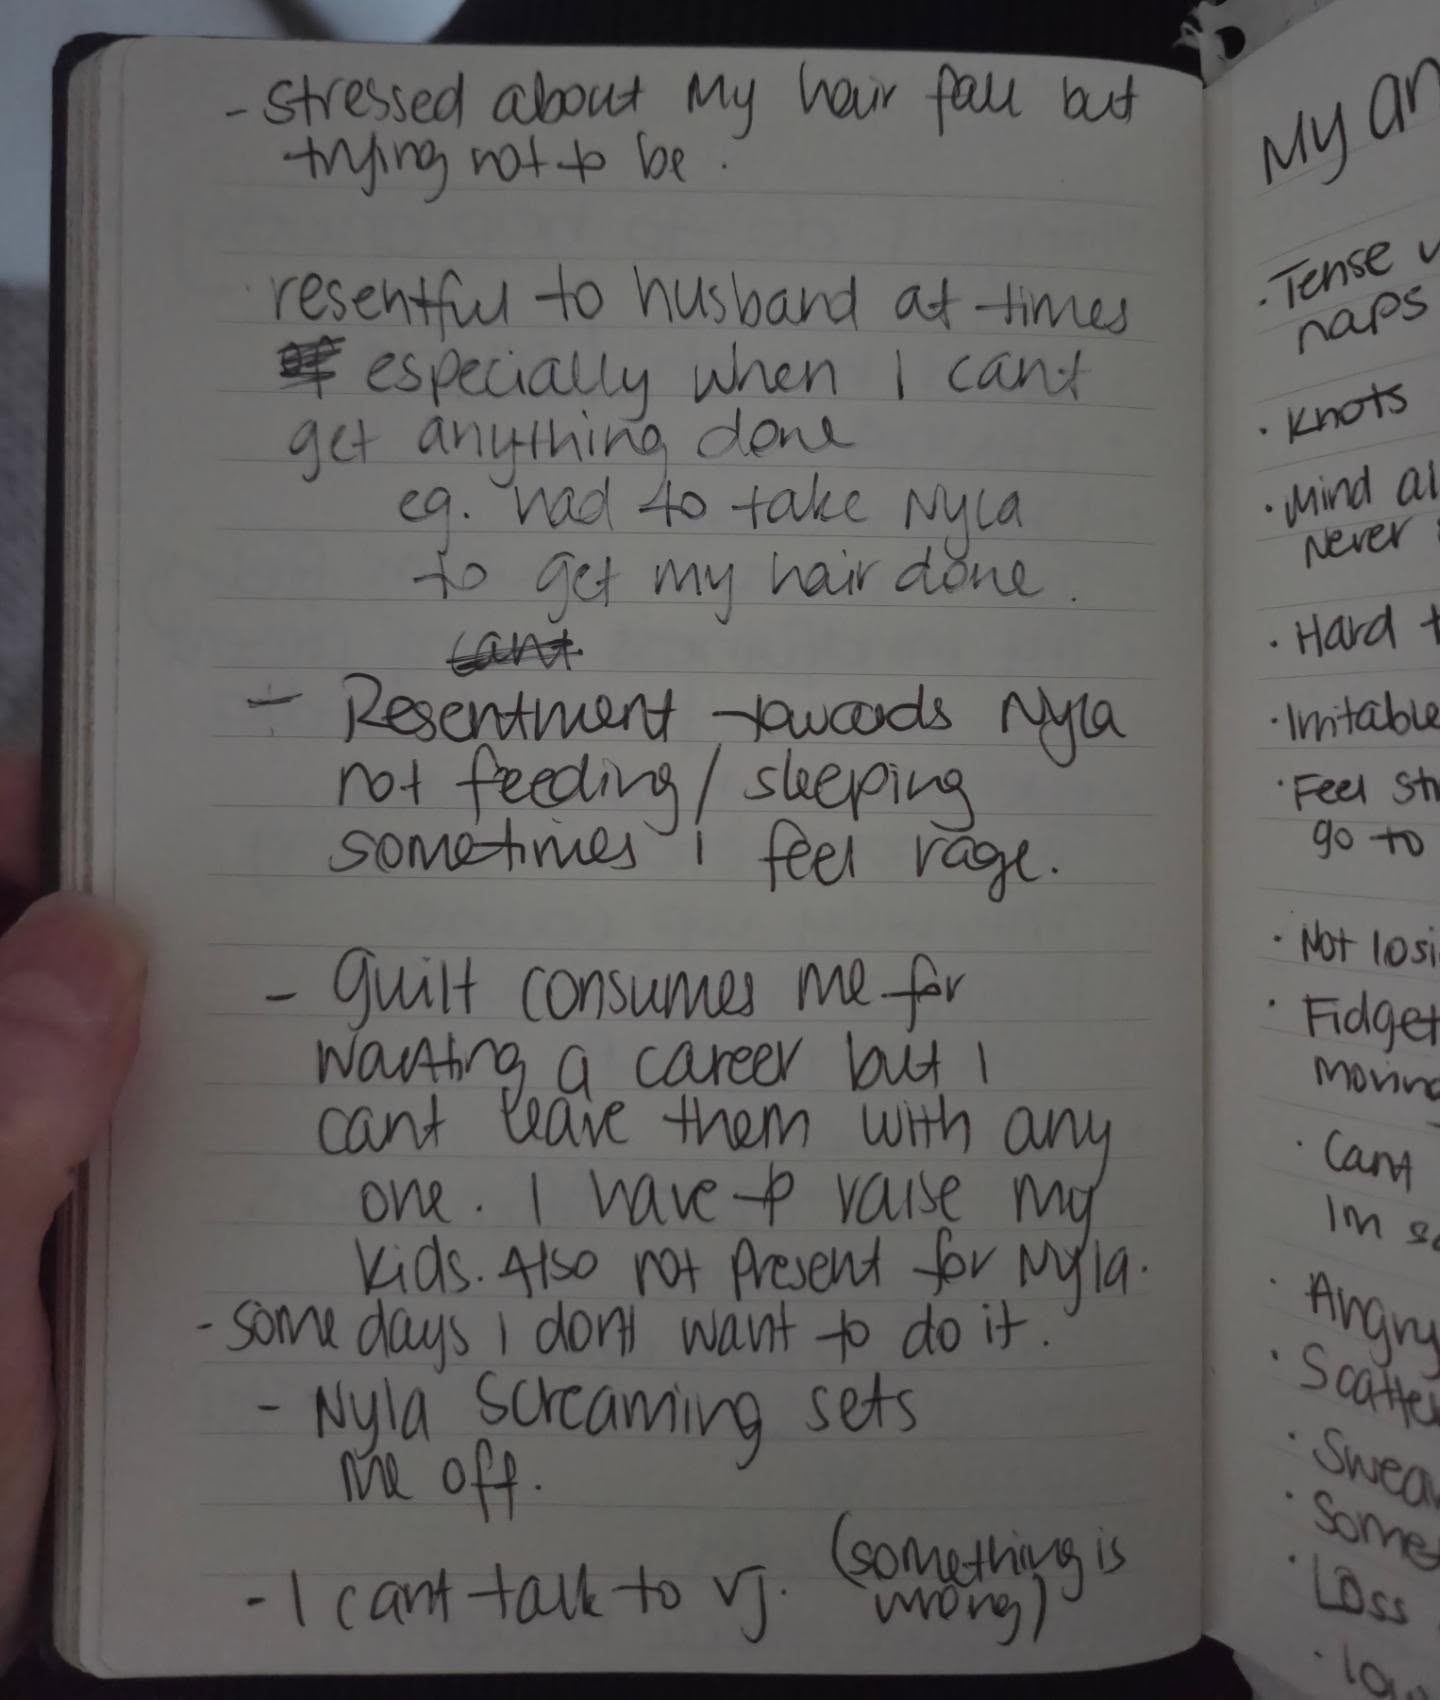 - stressed about My hair fall but
trying not to be.
resentful to husband at times
especially when I cant
get anything done
eg. had to take Nyla
to get my hair done.
cant
- Resentment towards Nyla
not feeding/sleeping
sometimes i feel rage.
- guilt consumes me for
wanting a career but I
cant leave them with any
one. I have to raise my
kids. Also not present for Nyla.
- some days I dont want to do it.
- Nyla screaming sets
me off.
- I cant talk to VJ. (something is
wrong)
My an
· Tense
naps
· Knots
· Mind al
Never
· Hard t
· Irritable
· Feel str
go to
· Not losi
· Fidget
moving
· Cant
Im so
· Angry
· Scatte
· Swea
· Some
· Loss
· low